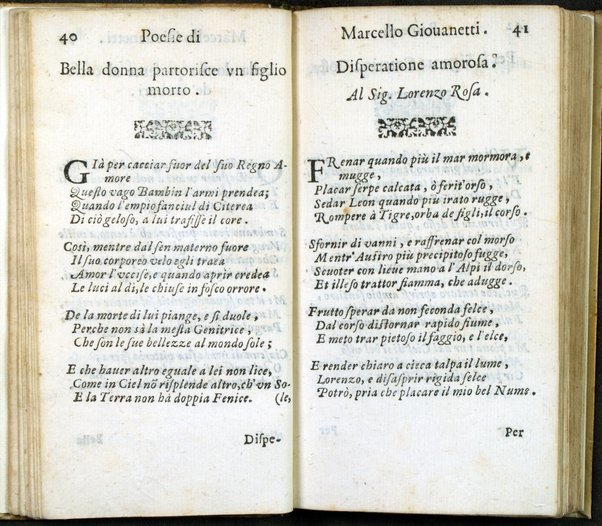 40 Poesie di
Bella donna partorisce vn figlio
morto.
GIà per cacciar fuor del suo Regno A-
more
Questo vago Bambin l'armi prendea;
Quando l'empio fanciul di Citerea
Di ciò geloso, a lui trafisse il core.
Così, mentre dal sen materno fuore
Il suo corporeo velo egli traea
Amor l'vccise, e quando aprir credea
Le luci al dì, le chiuse in fosco orrore.
De la morte di lui piange, e si duole,
Perche non sà la mesta Genitrice,
Che son le sue bellezze al mondo sole;
E che hauer altro eguale a lei non lice,
Come in Ciel nõ risplende altro, ch'vn So-
E la Terra non hà doppia Fenice. (le,
Dispe-
Marcello Giouanetti. 41
Disperatione amorosa.
Al Sig. Lorenzo Rosa.
FRenar quando più il mar mormora, e
mugge,
Placar serpe calcata, ò ferit'orso,
Sedar Leon quando più irato rugge,
Rompere à Tigre, orba de figli, il corso.
Sfornir di vanni, e raffrenar col morso
Mentr'Austro più precipitoso fugge,
Scuoter con lieue mano a l'Alpi il dorso,
Et illeso trattor fiamma, che adugge.
Frutto sperar da non feconda felce,
Dal corso distornar rapido fiume,
E meto trar pietoso il faggio, e l'elce,
E render chiaro a cieca talpa il lume,
Lorenzo, e disasprir rigida selce
Potrò, pria che placare il mio bel Nume.
Per